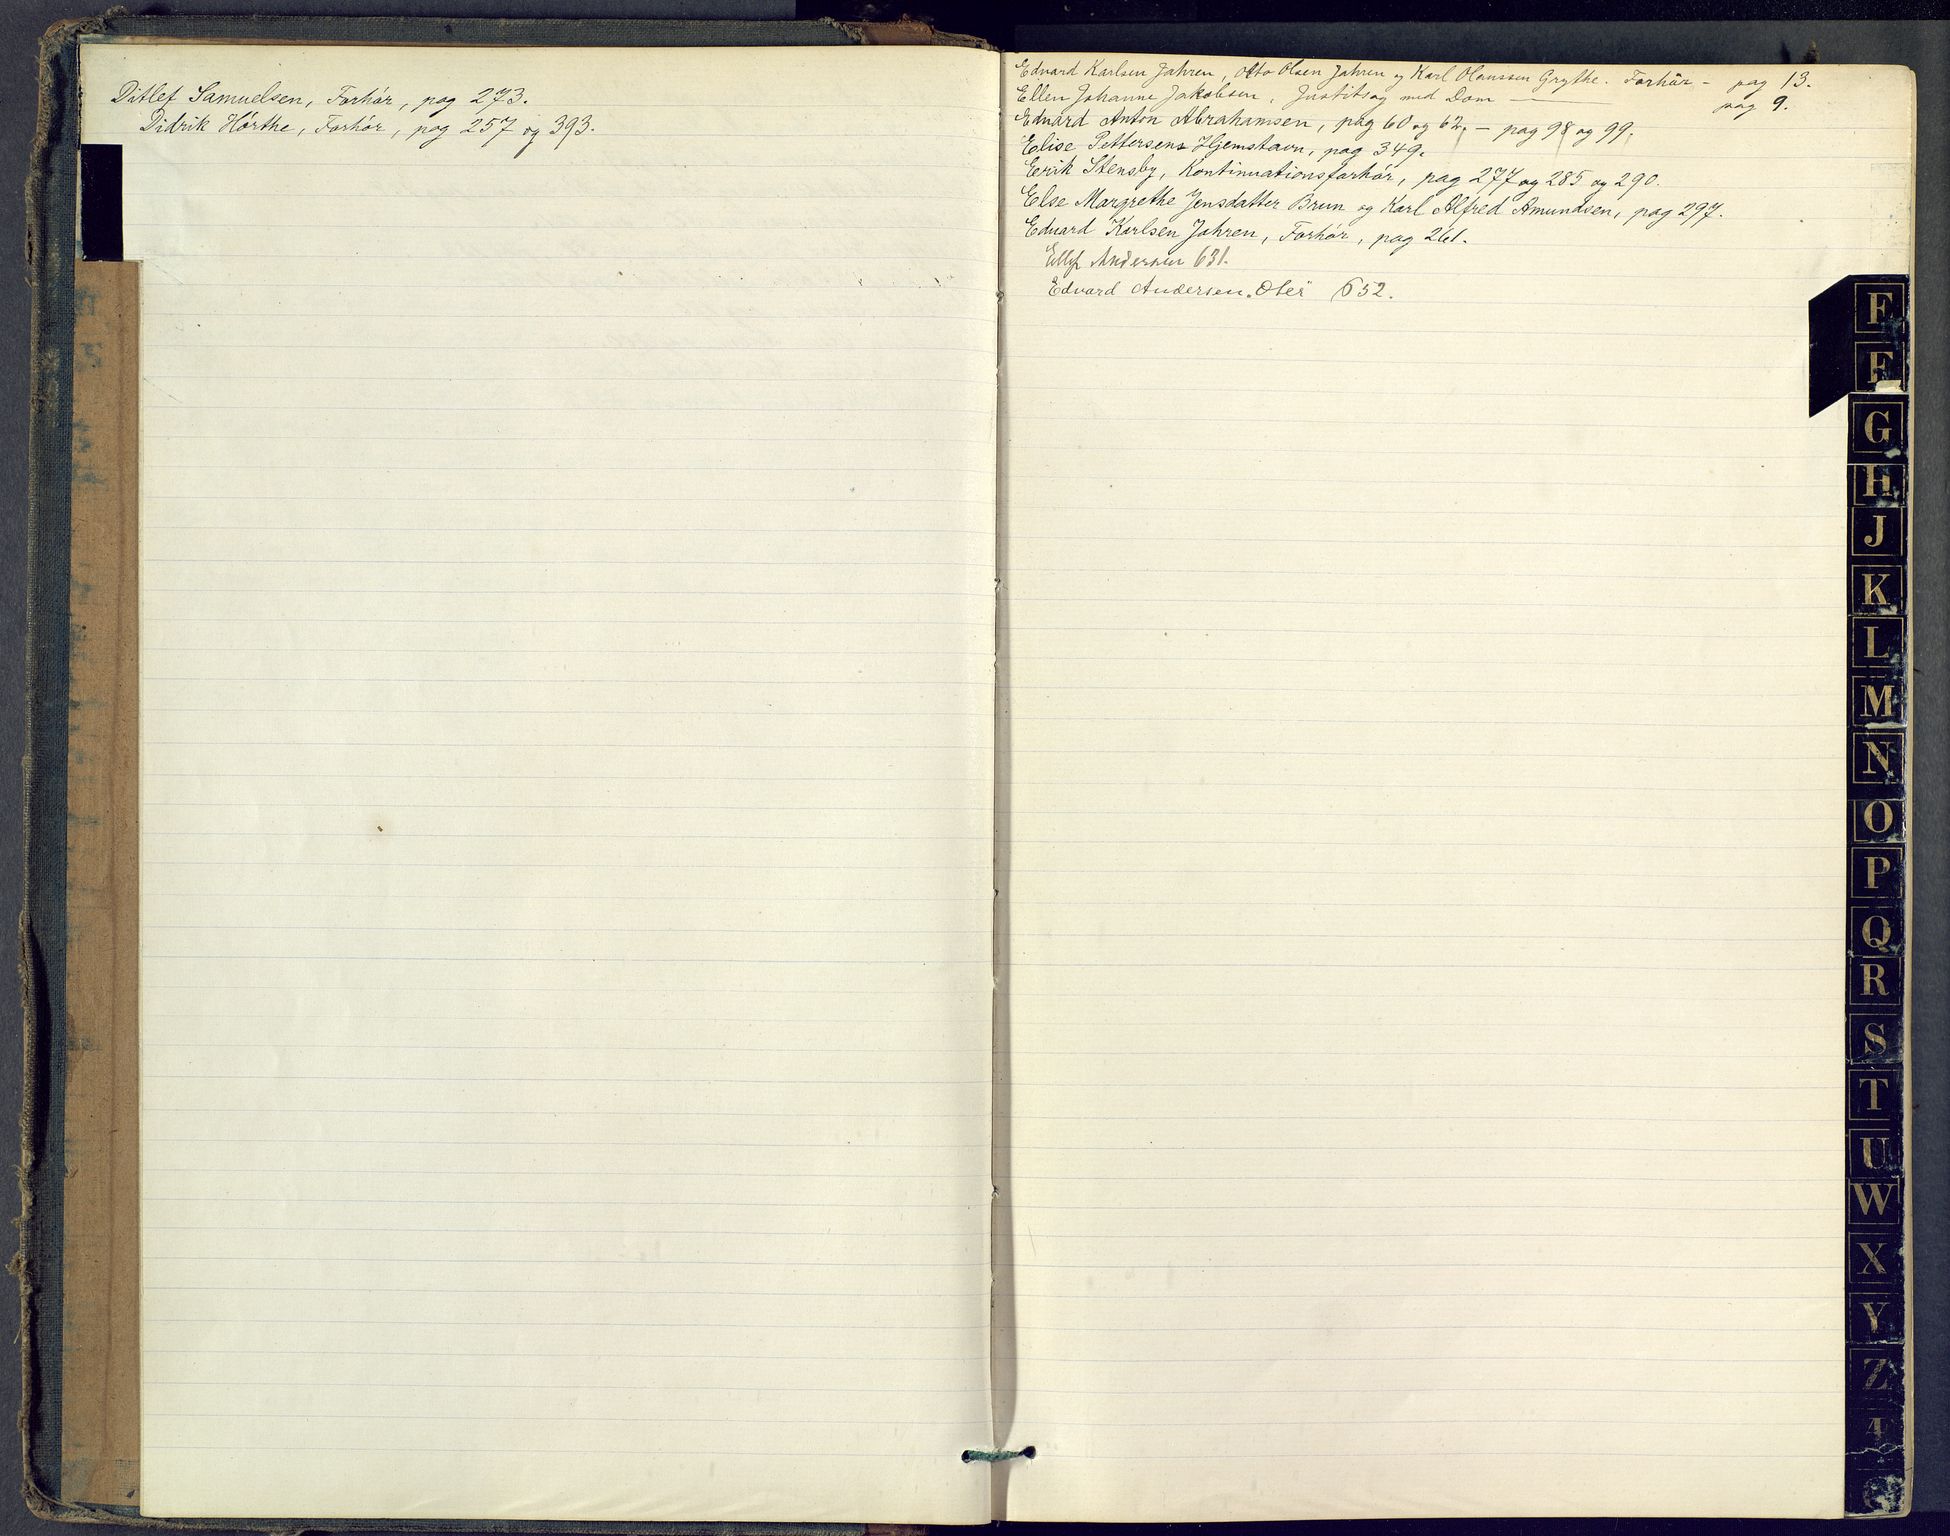 Ditlef Samuelsen, Forhör, pag 273.
Didrik Hörthe, Forhör, pag 257 og 393.
Edvard Karlsen Jahren, Otto Olsen Jahren og Karl Olaussen Grythe. Forhör - pag 13.
Ellen Johanne Jakobsen, Justitsag med Dom — pag 9.
Edvard Anton Abrahamsen, pag 60 og 62, - pag 98 og 99.
Elise Pettersens Hjemstavn, pag 349.
Erik Stensby, Kontinuationsforhör, pag 277 og 285 og 290.
Else Margrethe Jensdatter Brun og Karl Alfred Amundsen, pag 297.
Edvard Karlsen Jahren, Forhör, pag 261.
Ellef Andersen 631.
Edvard Andersen Oter 652.
E
F
G
H
J
K
L
M
N
O
P
Q
R
S
T
U
W
X
Y
Z